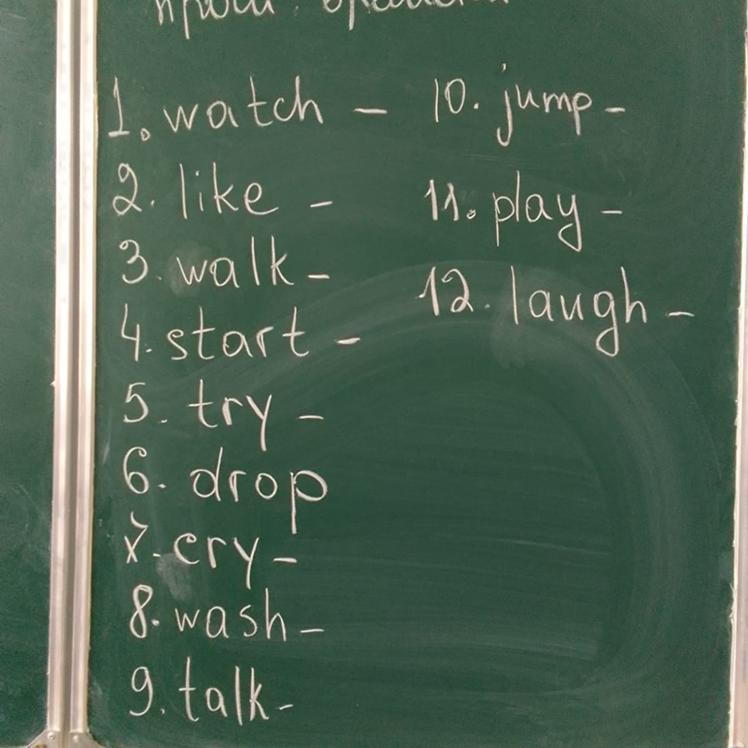 1. watch –
2. like –
3. walk –
4. start –
5. try –
6. drop
7. cry –
8. wash –
9. talk -
10. jump –
11. play –
12. laugh –